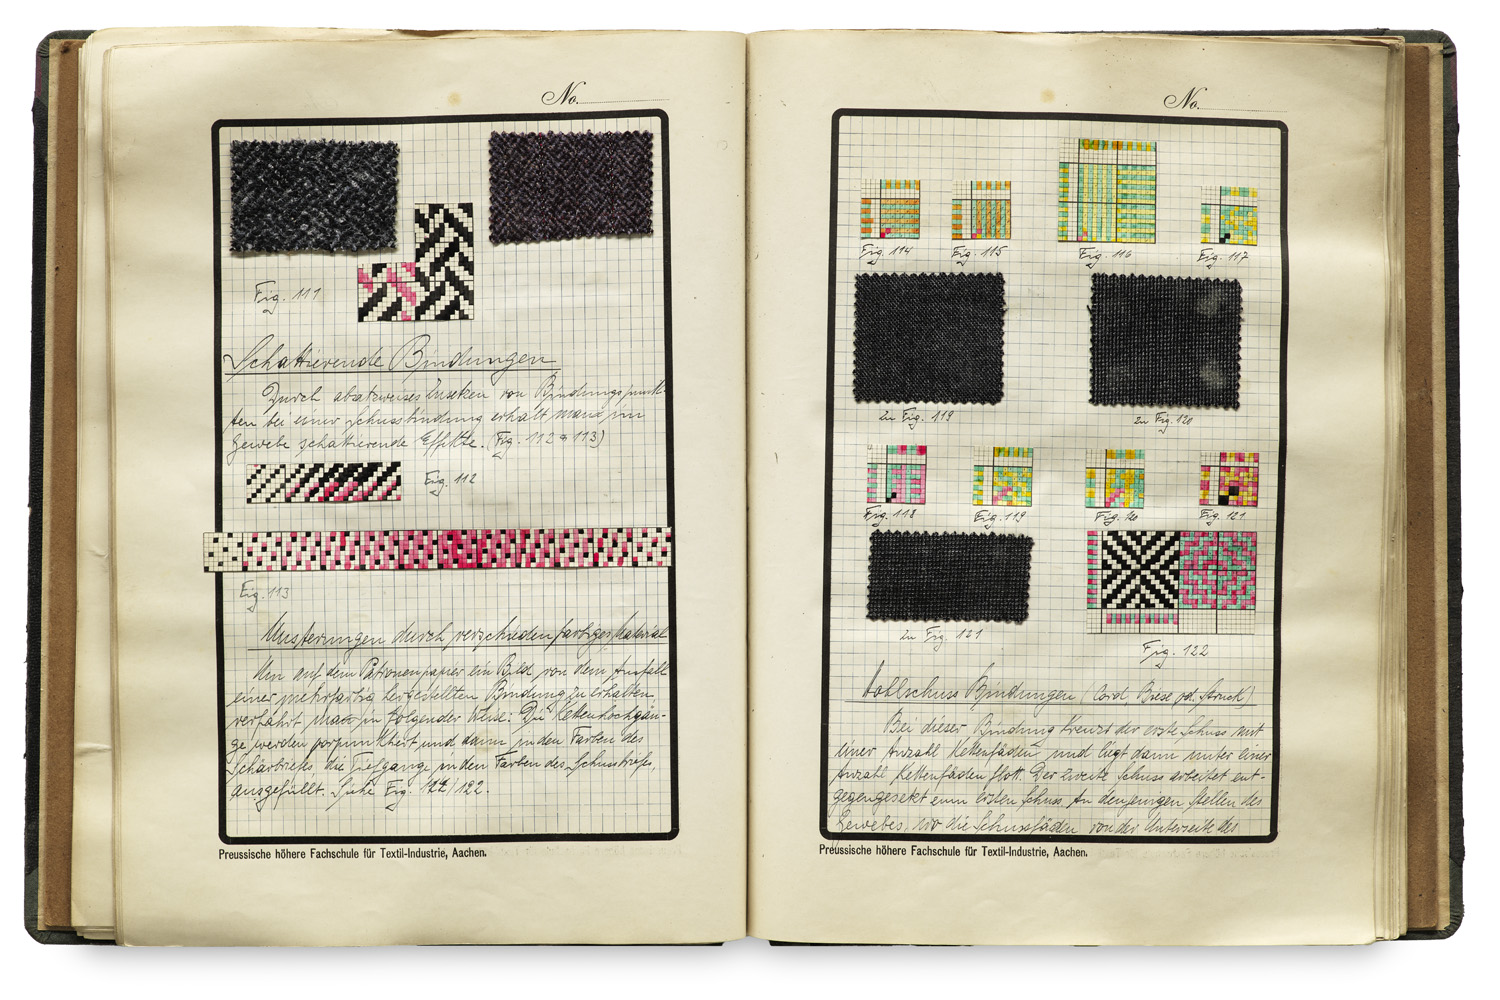 No.
Fig. 111
Schattierende Bindungen
Durch absatzweises Ansetzen von Bindungspunk-
ten bei einer Schussbindung erhält man im
Gewebe schattierende Effekte. (Fig. 112 & 113)
Fig. 112
Fig. 113
Musterungen durch verschiedenfarbiges Material
Um auf dem Patronenpapier ein Bild von dem Ausfall
einer mehrfarbig hergestellten Bindung zu erhalten
verfährt man in folgender Weise: Die Kettenhochgän-
ge werden vorpunktiert und dann in den Farben des
Schärbriefes, die Tiefgänge in den Farben des Schussbriefes,
ausgefüllt. Siehe Fig. /122.
Preussische höhere Fachschule für Textil-Industrie, Aachen.
No.
Fig. 114
Fig. 115
Fig. 116
Fig. 117
zu Fig. 119
zu Fig. 120
Fig. 118
Fig. 119
Fig. 120
Fig. 121
zu Fig. 121
Fig. 122
Hohlschuss Bindungen (Cord, Biese od. Struck)
Bei dieser Bindung kreuzt der erste Schuss mit
einer Anzahl Kettenfäden und liegt dann unter einer
Anzahl Kettenfäden flott. Der zweite Schuss arbeitet ent-
gegengesetzt zum ersten Schuss. An denjenigen Stellen des
Gewebes, wo die Schussfäden von der Unterseite des
Preussische höhere Fachschule für Textil-Industrie, Aachen.